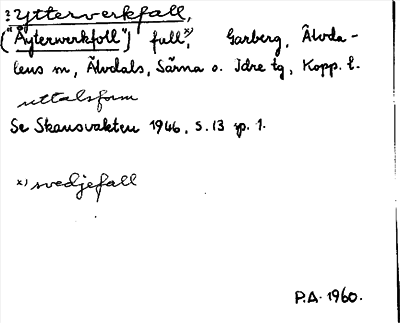 ? Ytterverkfall,
("Äyterverkfoll") fall, x) Garberg, Älvda-
lens sn, Älvdals, Särna o. Idre tg, Kopp. l.
uttalsform
Se Skansvakten 1946, s. 13 sp. 1.
x) svedjefall
P.A. 1960.